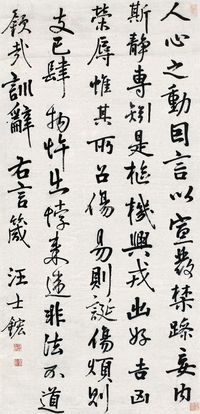 人心之動因言以宣發禁躁妄內
斯靜專矧是樞機興戎出好吉凶
榮辱惟其所召傷易則誕傷煩則
支己肆物忤出悖来違非法不道
欽哉訓辭 右言箴 汪士鋐